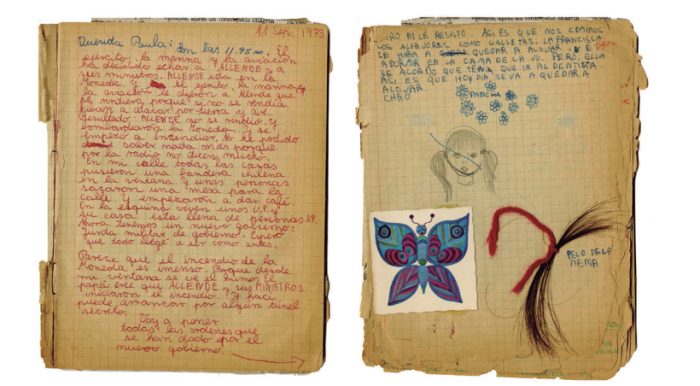 11 Sep, 1973
Querida Paula: Son las 11.45 . El
ejercito, la marina y la aviación
ha decidido echar a ALLENDE y a
sus ministros. ALLENDE esta en la
Moneda. Y el ejercito, la marina y
la aviación le dijeron a Allende que
se rindiera, porque si no se rendia
iban a atacar por tierra y aire
Resultado: ALLENDE no se rindio. Y
bombardearon la Moneda, y se
empezó a incendiar. No he podido
saber nada más porque
por la radio no dicen mucho.
En mi calle todas las casas
pusieron una bandera chilena
en la ventana y unas personas
sacaron una mesa para la
calle. Y empezaron a dar café.
En la esquina viven unos U.P. y
su casa esta llena de personas UP.
Ahora tenemos un nuevo gobierno:
Junta militar de gobierno. Espero
que todo llege a ser como antes.
Parece que el incendio de la
Moneda, es inmenso. Porque desde
mi ventana se ve el humo. El
papá cree que ALLENDE y sus MINISTROS
iniciaron el incendio. Y hace
puede arrancar por algún túnel
secreto.
Voy a poner
todas las ordenes que
se han dado por el
nuevo gobierno
PERO NO LE RESULTO. ASI ES QUE NOS COMIMOS
LOS ALFAJORES COMO GALLETAS. LA FRANCISCA
SE IBA A QUEDAR A ALOJAR, Y E
A DORMIR EN LA CAMA DE LA JU. PERO, ELLA
SE ACORDO QUE TENIA QUE IR AL DENTISTA
ASI ES QUE HOY DIA SE VA A QUEDAR A
ALOJAR
CHAO
FRANCISCA
PELO DE LA
NENA